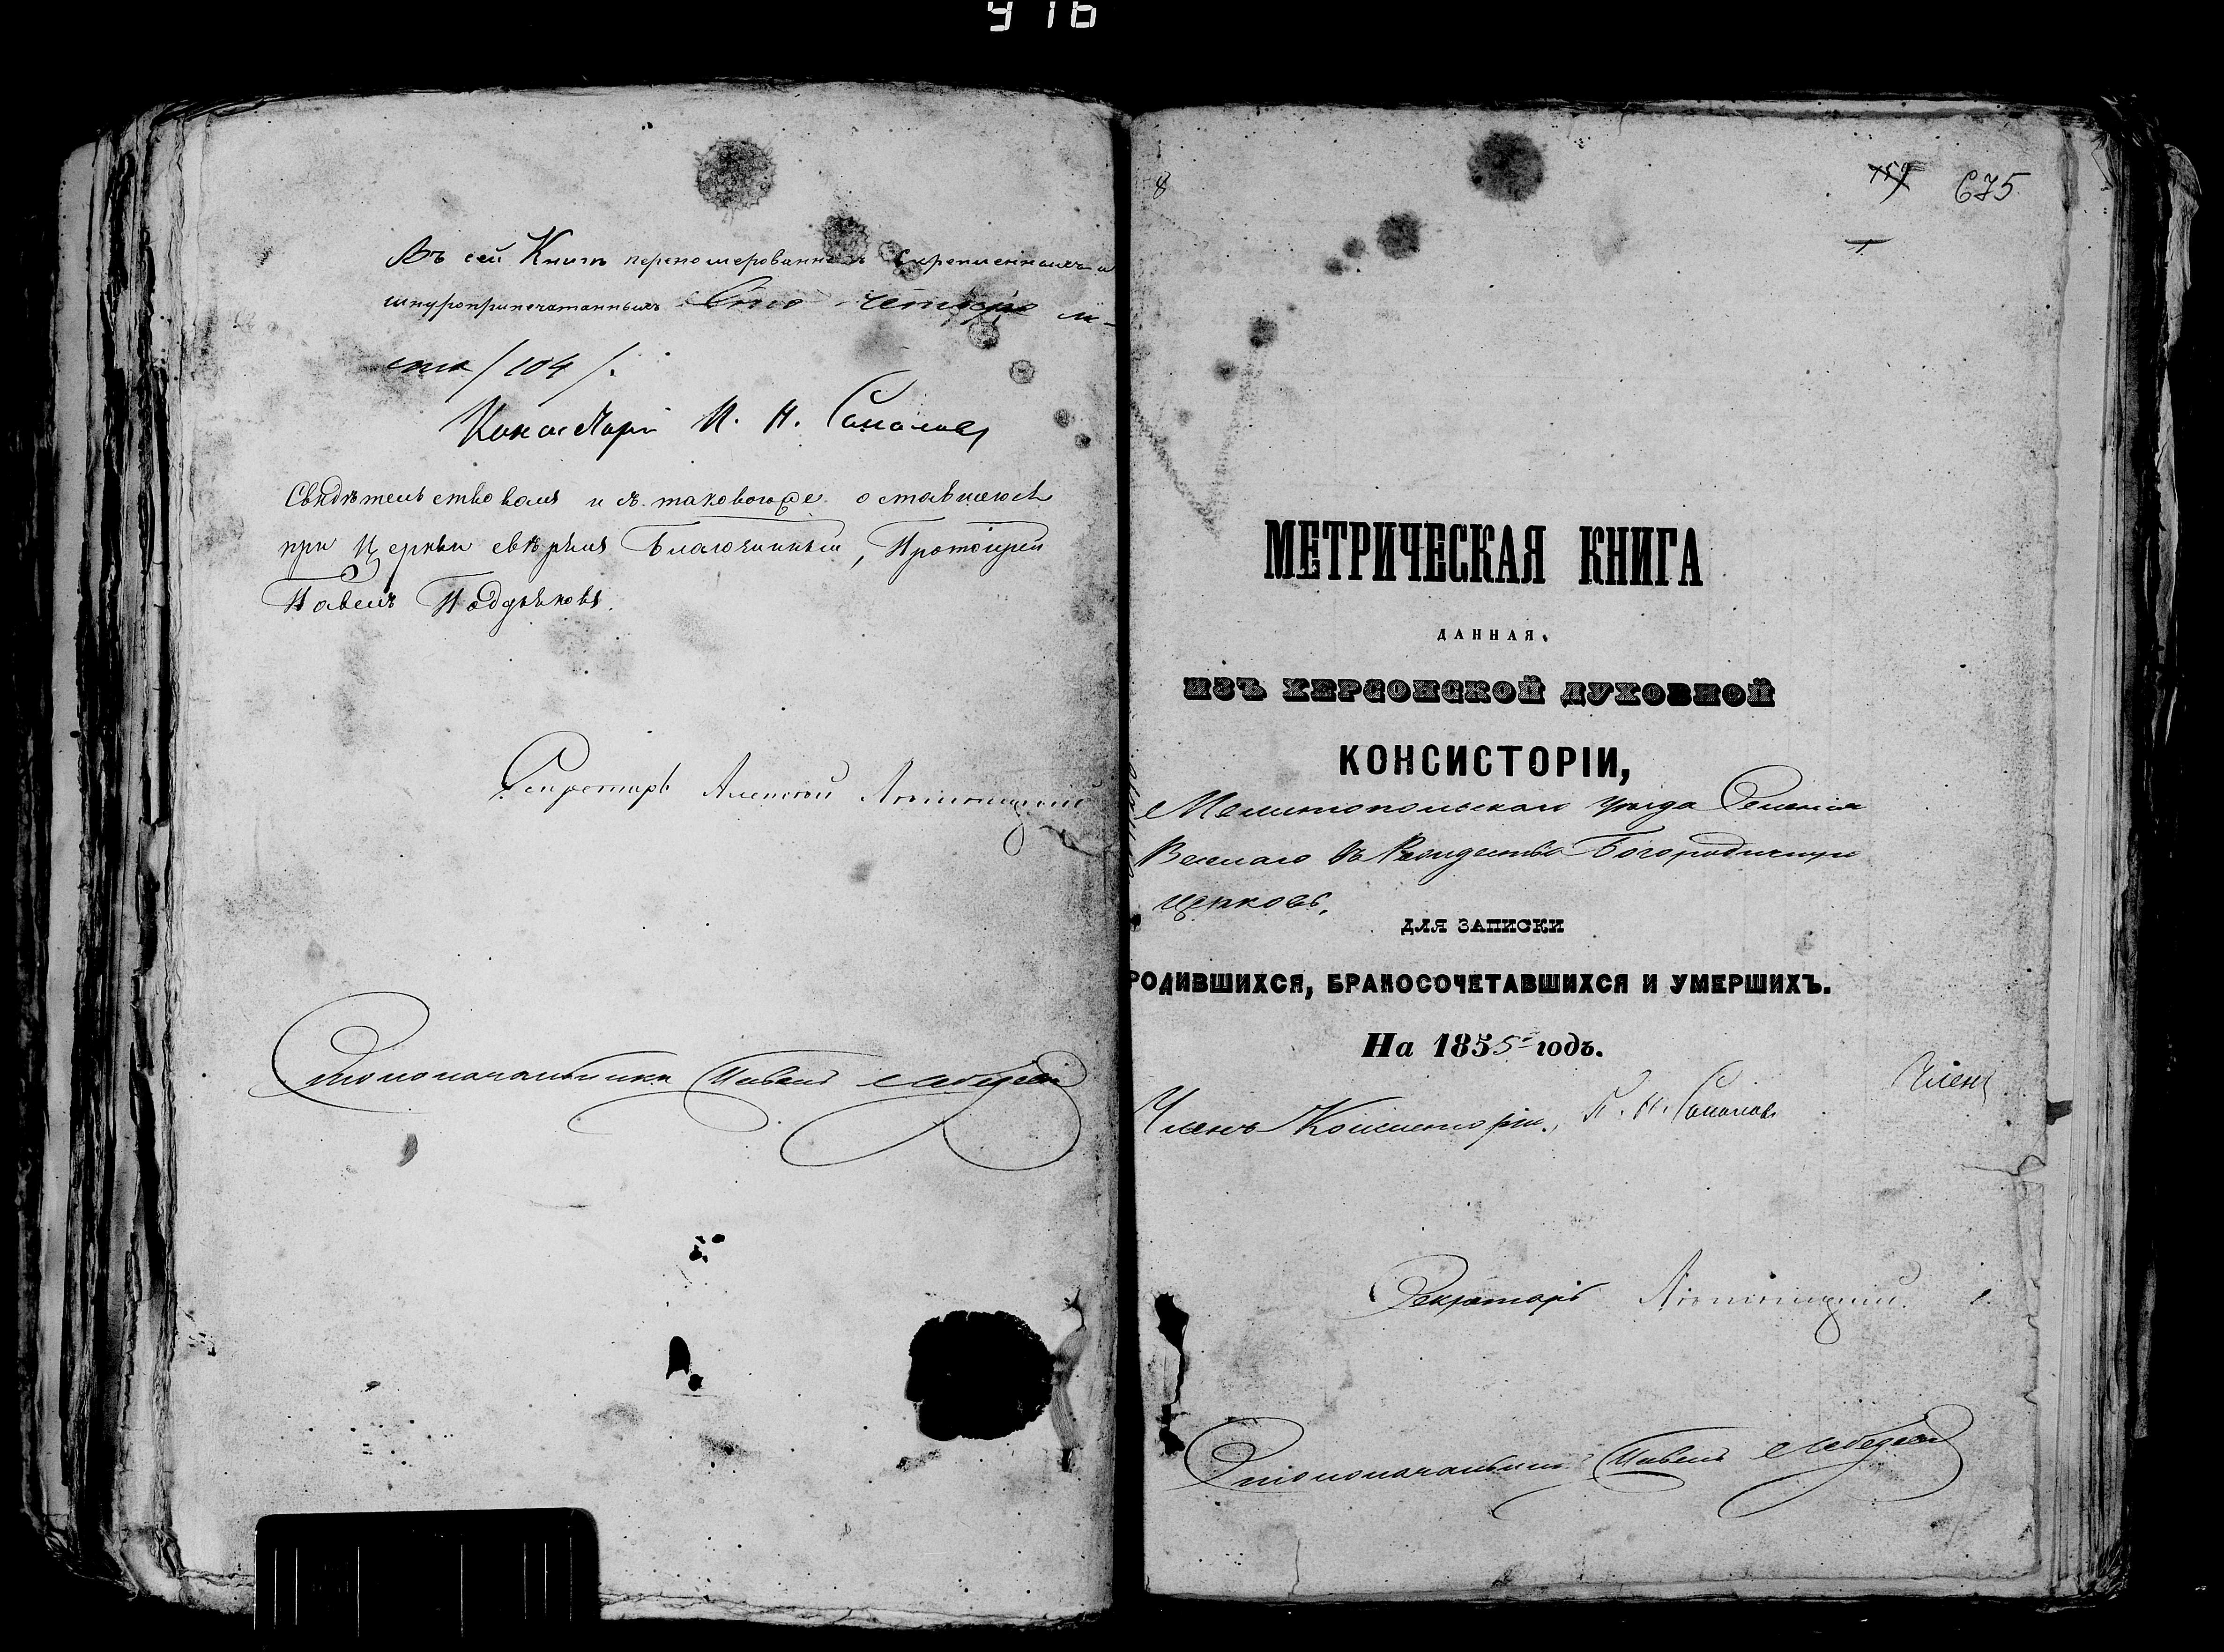 916
Въ сей Книгѣ перенумерованныхъ скрепленныхъ и
шнуроприпечатанныхъ Сто четыре ли-
ста /104/.
Свидѣтельствовалъ и съ таковою же оставшеюся
при Церкви свѣрялъ Благочинный, Протоіерей
Павелъ
Секретарь Алексѣй
Столоначальникъ Павелъ Лебедевъ
8
159 675
1
МЕТРИЧЕСКАЯ КНИГА
ДАННАЯ
ИЗЪ ХЕРСОНСКОЙ ДУХОВНОЙ
КОНСИСТОРІИ,
Мелитопольскаго уѣзда Селенія
Веселаго въ Рождество Богородичную
церковь,
ДЛЯ ЗАПИСКИ
РОДИВШИХСЯ, БРАКОСОЧЕТАВШИХСЯ И УМЕРШИХЪ.
На 1855 годъ.
Членъ
Членъ Консисторіи,
Секретарь
Столоначальникъ Павелъ Лебедевъ